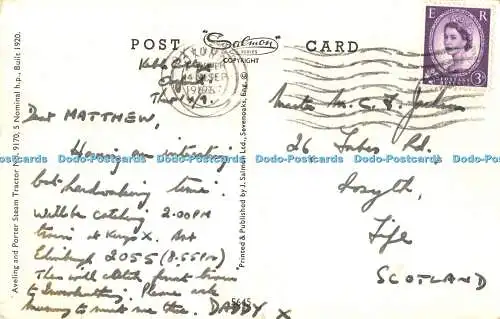 POST "Salmon" CARD
SERIES
COPYRIGHT
E R
3D
SEP
Thurs 14/9.
Dear MATTHEW,
Having an interesting
but hardworking time.
Will be catching 2.00PM
train at Kings X. Arr
Edinburgh 2055 (8.55PM)
This will catch first train
to Inverkeithing. Please ask
mummy to meet me there. DADDY X
Master M. C. F. Jackson
26 Forbes Rd,
Rosyth,
Fife
SCOTLAND
Aveling and Porter Steam Tractor No. 9170, 5 Nominal h.p., Built 1920.
Printed & Published by J. Salmon Ltd., Sevenoaks, Eng. ©
5645
Dodo-Postcards Dodo-Postcards Dodo-Postcards Dodo-Postcards Dodo-Postcards Dodo-Postcards